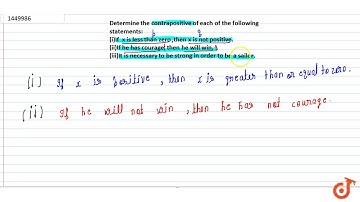 1449986
Determine the contrapositive of each of the following
statements:
p q
(i)If x is less than zero ,then x is not positive.
(ii)If he has courage, then he will win,
(iii)It is necessary to be strong in order to be a sailor.
(i) If x is positive , then x is greater than or equal to zero.
(ii) If he will not win , then he has not courage.